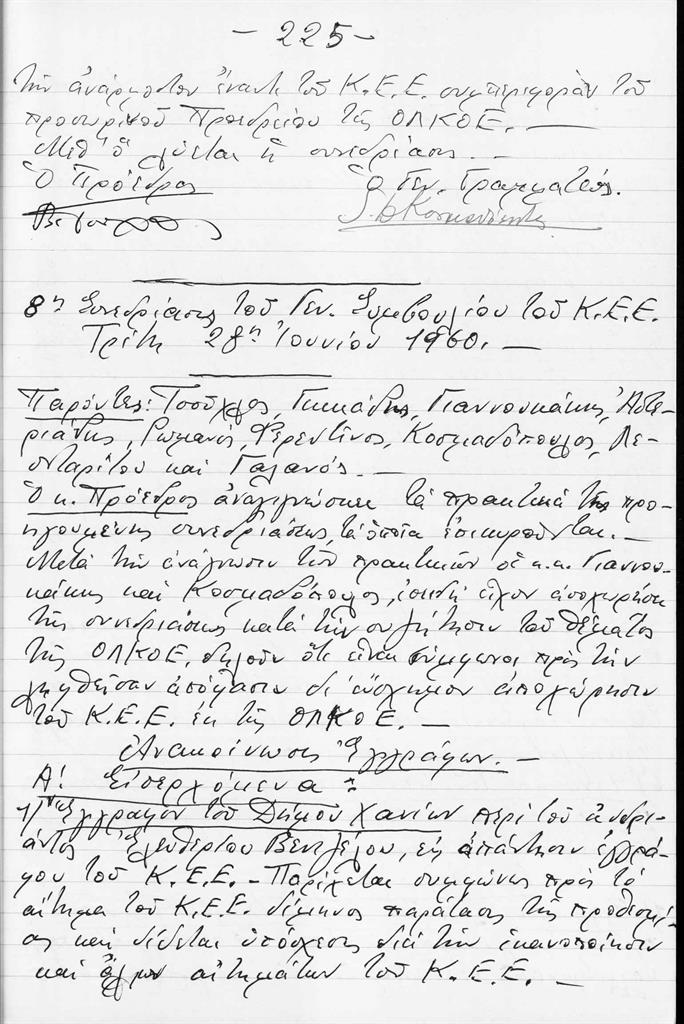 - 225 -
τὴν ἀνάρμοστον ἔναντι τοῦ Κ.Ε.Ε. συμπεριφορὰν τοῦ
προσωρινοῦ Προεδρείου τῆς ΟΛΚΟΕ. —
Μεθ' ὃ λύεται ἡ συνεδρίασις. —
Ὁ Πρόεδρος Ὁ Γεν. Γραμματεύς.
8η Συνεδρίασις τοῦ Γεν. Συμβουλίου τοῦ Κ.Ε.Ε.
Τρίτη 28η Ἰουνίου 1960. —
Παρόντες: Τσούχλος, Γκικάδης, Γιαννουκάκης, Ἀστε-
ριάδης, Ρωμανός, Φερεντῖνος, Κοσμαδόπουλος, Λε-
ονταρίτου καὶ Γαλανός. —
Ὁ κ. Πρόεδρος ἀναγιγνώσκει τὰ πρακτικὰ τῆς προ-
ηγουμένης συνεδριάσεως, τὰ ὁποῖα ἐπικυροῦνται. —
Μετὰ τὴν ἀνάγνωσιν τῶν πρακτικῶν οἱ κ.κ. Γιαννου-
κάκης καὶ Κοσμαδόπουλος, ἐπειδὴ εἶχον ἀποχωρήσει
τῆς συνεδριάσεως κατὰ τὴν συζήτησιν τοῦ θέματος
τῆς ΟΛΚΟΕ, δηλοῦν ὅτι εἶναι σύμφωνοι πρὸς τὴν
ληφθεῖσαν ἀπόφασιν δι' εὔσχημον ἀποχώρησιν
τοῦ Κ.Ε.Ε. ἐκ τῆς ΟΛΚΟΕ. —
Ἀνακοίνωσις Ἐγγράφων. —
Α! Εἰσερχόμενα:
1) Ἔγγραφον τοῦ Δήμου Χανίων περὶ τοῦ ἀνδρι-
άντος Ἐλευθερίου Βενιζέλου, εἰς ἀπάντησιν ἐγγρά-
φου τοῦ Κ.Ε.Ε. - Παρέχεται συμφώνως πρὸς τὸ
αἴτημα τοῦ Κ.Ε.Ε. δίμηνος παράτασις τῆς προθεσμί-
ας καὶ δίδεται ὑπόσχεσις διὰ τὴν ἱκανοποίησιν
καὶ ἄλλων αἰτημάτων τοῦ Κ.Ε.Ε. —